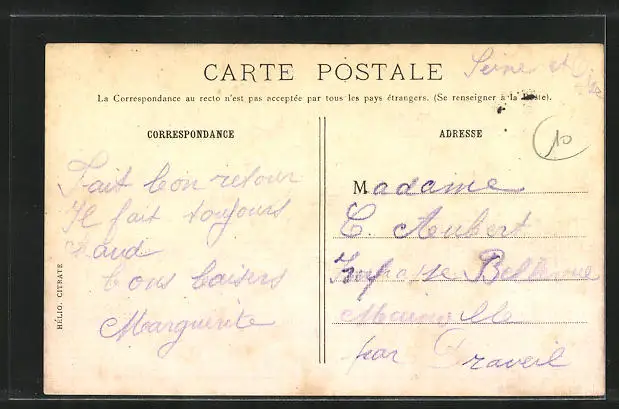 CARTE POSTALE
Seine et Oise
La Correspondance au recto n'est pas acceptée par tous les pays étrangers. (Se renseigner à la Poste).
CORRESPONDANCE
Fait bon retour
Il fait toujours
chaud
bons baisers
Marguerite
HÉLIO. CITRATE
ADRESSE
10
Madame
C. Aubert
Bellevue
par Draveil